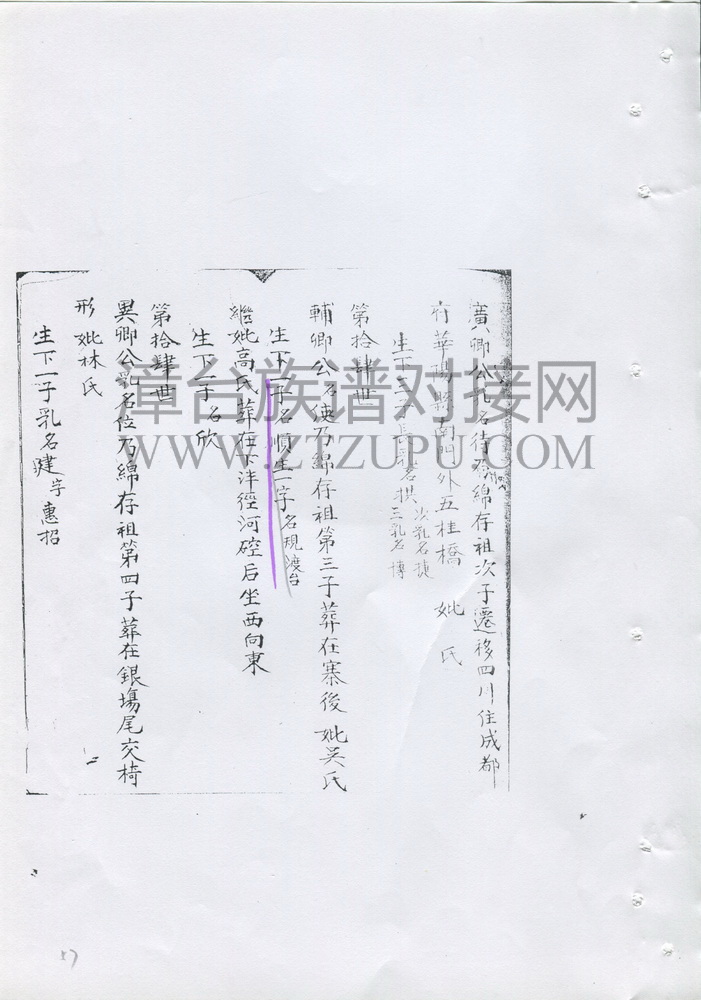 廣卿公乳名待乃綿存祖次子遷移四川住成都
府華陽縣南門外五桂橋 妣 氏
生下三子長乳名拱 次乳名捷
三乳名博
第拾肆世
輔卿公名使乃綿存祖第三子葬在寨後 妣吳氏
生下一子名順生一字名現渡台
繼妣高氏葬在下洋徑河硿后坐西向東
生下一子名欣
第拾肆世
異卿公乳名位乃綿存祖第四子葬在銀塲尾交椅
形 妣林氏
生下一子乳名建字惠招
漳台族谱对接网
WWW.ZTZUPU.COM
57